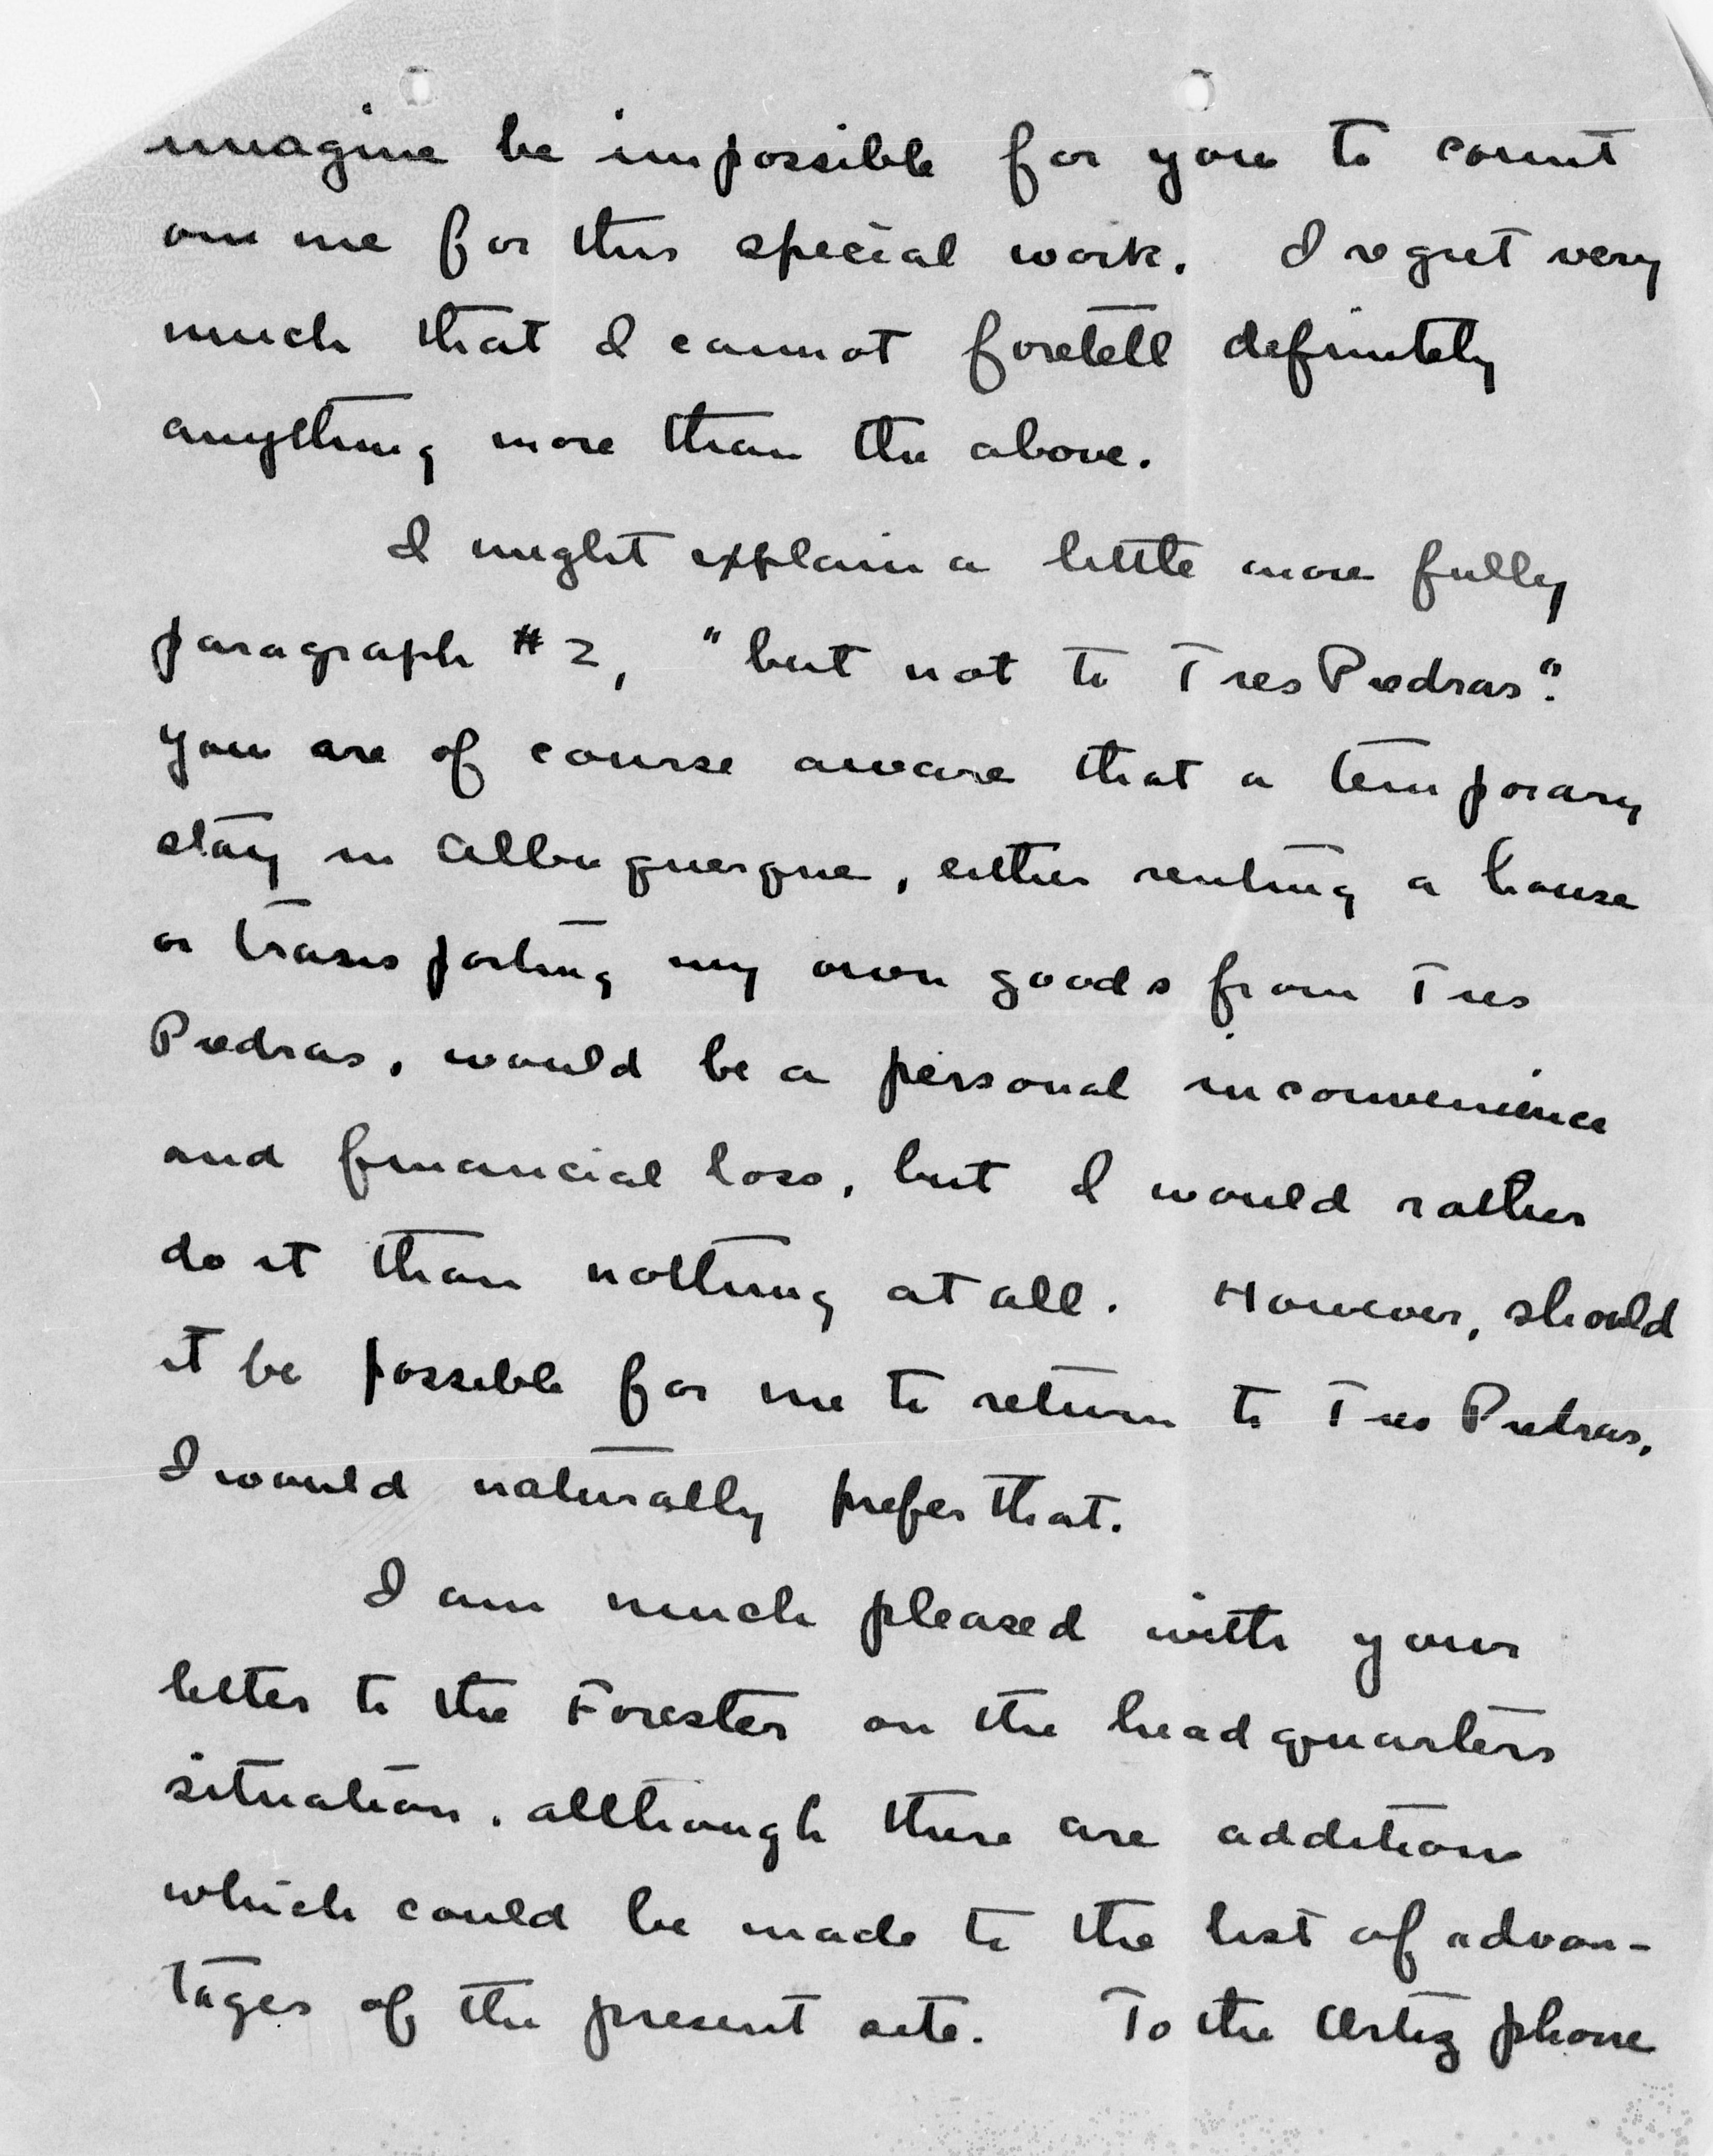 imagine be impossible for you to count
on me for this special work. I regret very
much that I cannot foretell definitely
anything more than the above.
I might explain a little more fully
paragraph #2, "but not to Tres Piedras".
You are of course aware that a temporary
stay in Albuquerque, either renting a house
or transporting my own goods from Tres
Piedras, would be a personal inconvenience
and financial loss, but I would rather
do it than nothing at all. However, should
it be possible for me to return to Tres Piedras,
I would naturally prefer that.
I am much pleased with your
letter to the Forester on the headquarters
situation, although there are additions
which could be made to the list of advan-
tages of the present site. To the Ortiz phone